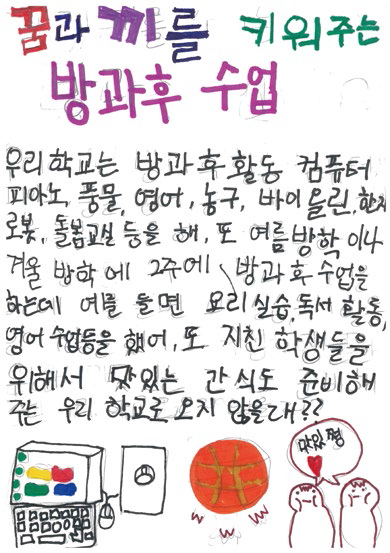 꿈과 끼를 키워주는
방과후 수업
우리학교는 방과후활동 컴퓨터
피아노, 풍물, 영어, 농구, 바이올린, 한자
로봇, 돌봄교실 등을 해, 또 여름방학이나
겨울 방학에 2주에 방과후수업을
하는데 예를 들면 요리실습, 독서 활동,
영어 수업등을 했어, 또 지친 학생들을
위해서 맛있는 간식도 준비해
주는 우리 학교로 오지 않을래??
맛있쪙